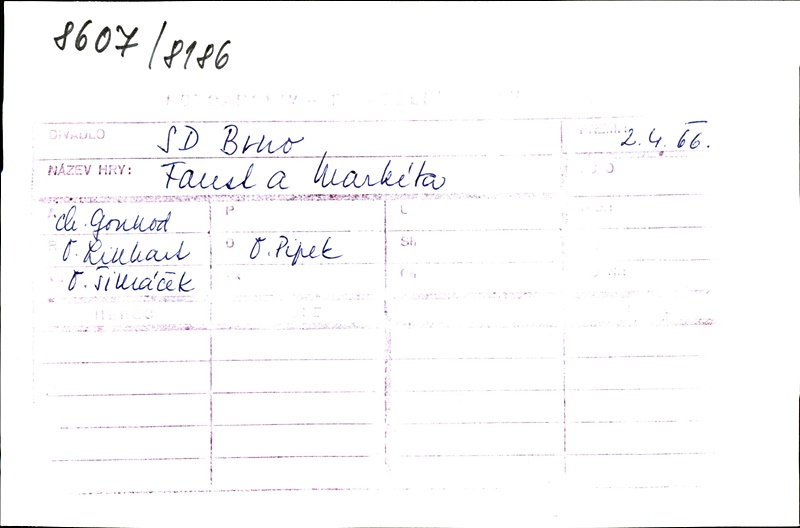 8607/8186
DIVADLO SD Brno 2.4.66.
NÁZEV HRY: Faust a Markéta
Ch. Gounod P L
O. Linhart O O. Pipek
O. Šimáček